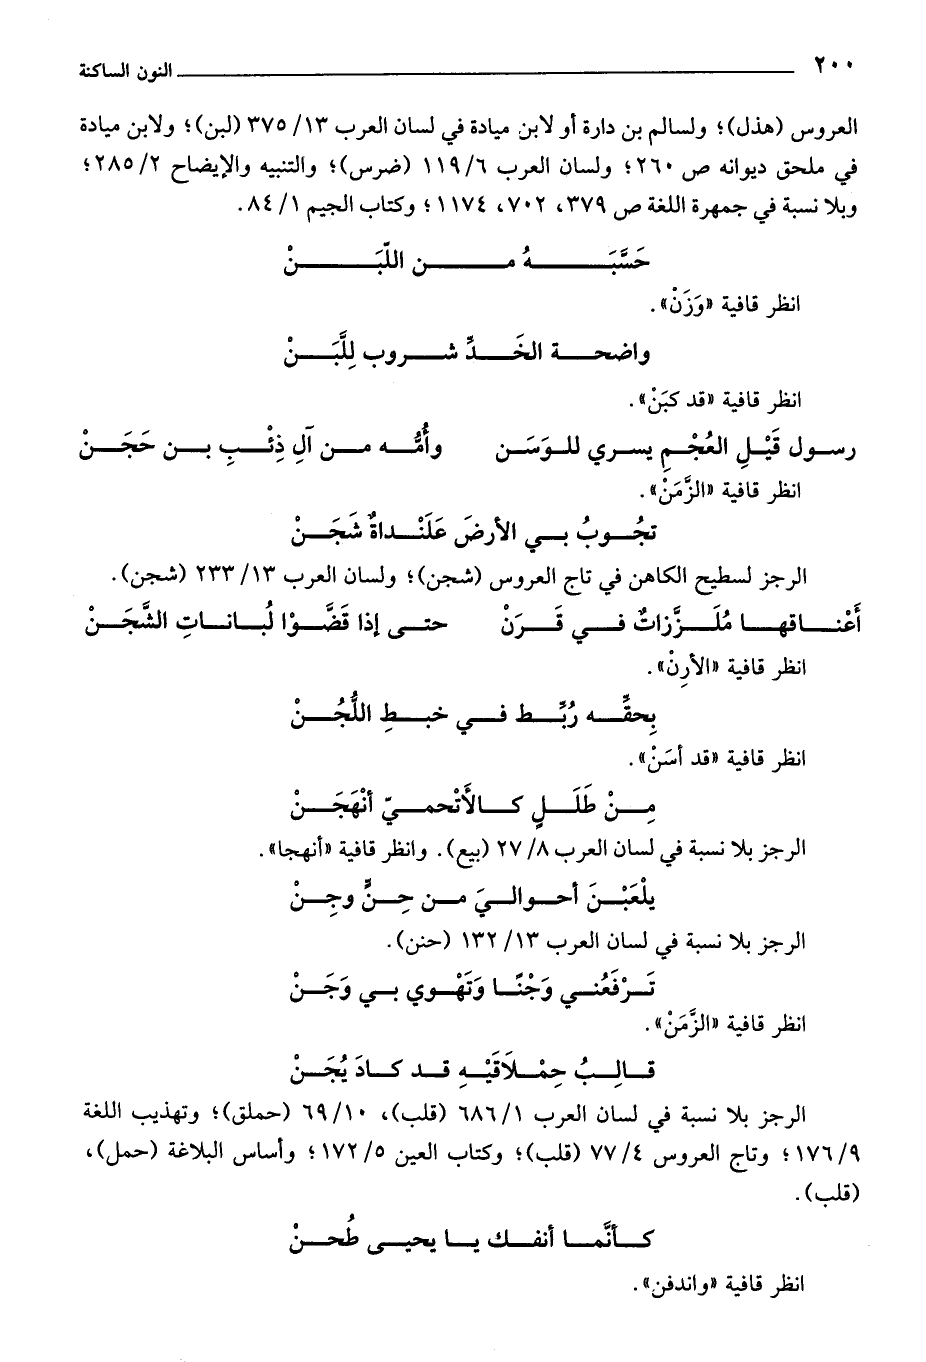 ٢٠٠ النون الساكنة
العروس (هذل)؛ ولسالم بن دارة أو لابن ميادة في لسان العرب ١٣/ ٣٧٥ (لبن)؛ ولابن ميادة
في ملحق ديوانه ص ٢٦٠؛ ولسان العرب ٦/ ١١٩ (ضرس)؛ والتنبيه والإيضاح ٢/ ٢٨٥؛
وبلا نسبة في جمهرة اللغة ص ٣٧٩، ٧٠٢، ١١٧٤؛ وكتاب الجيم ١/ ٨٤.
حَسَّبَهُ من اللّبَنْ
انظر قافية «وَزَنْ».
واضحة الخَدِّ شروب لِلَّبَنْ
انظر قافية «قد كبَنْ».
رسول قَيْلِ العُجْمِ يسري للوَسَن وأُمُّه من آلِ ذِئْبِ بن حَجَنْ
انظر قافية «الزَّمَنْ».
تجُوبُ بي الأرضَ عَلَنْداةٌ شَجَنْ
الرجز لسطيح الكاهن في تاج العروس (شجن)؛ ولسان العرب ١٣/ ٢٣٣ (شجن).
أَعْناقها مُلَزَّزاتٌ في قَرَنْ حتى إذا قَضَّوْا لُباناتِ الشَّجَنْ
انظر قافية «الأرِنْ».
بِحقِّه رُبِّط في خبطِ اللُّجُنْ
انظر قافية «قد أسَنْ».
مِنْ طَلَلٍ كالأَتْحميّ أنْهَجَنْ
الرجز بلا نسبة في لسان العرب ٨/ ٢٧ (بيع). وانظر قافية «أنهجا».
يلْعَبْنَ أحواليَ من حِنٍّ وجِنْ
الرجز بلا نسبة في لسان العرب ١٣/ ١٣٢ (حنن).
تَرْفَعُني وَجْنًا وَتَهْوي بي وَجَنْ
انظر قافية «الزَّمَنْ».
قالِبُ حِمْلَاقَيْهِ قد كادَ يُجَنْ
الرجز بلا نسبة في لسان العرب ١/ ٦٨٦ (قلب)، ١٠/ ٦٩ (حملق)؛ وتهذيب اللغة
٩/ ١٧٦؛ وتاج العروس ٤/ ٧٧ (قلب)؛ وكتاب العين ٥/ ١٧٢؛ وأساس البلاغة (حمل)،
(قلب).
كأنَّما أنفك يا يحيى طُحنْ
انظر قافية «واندفن».